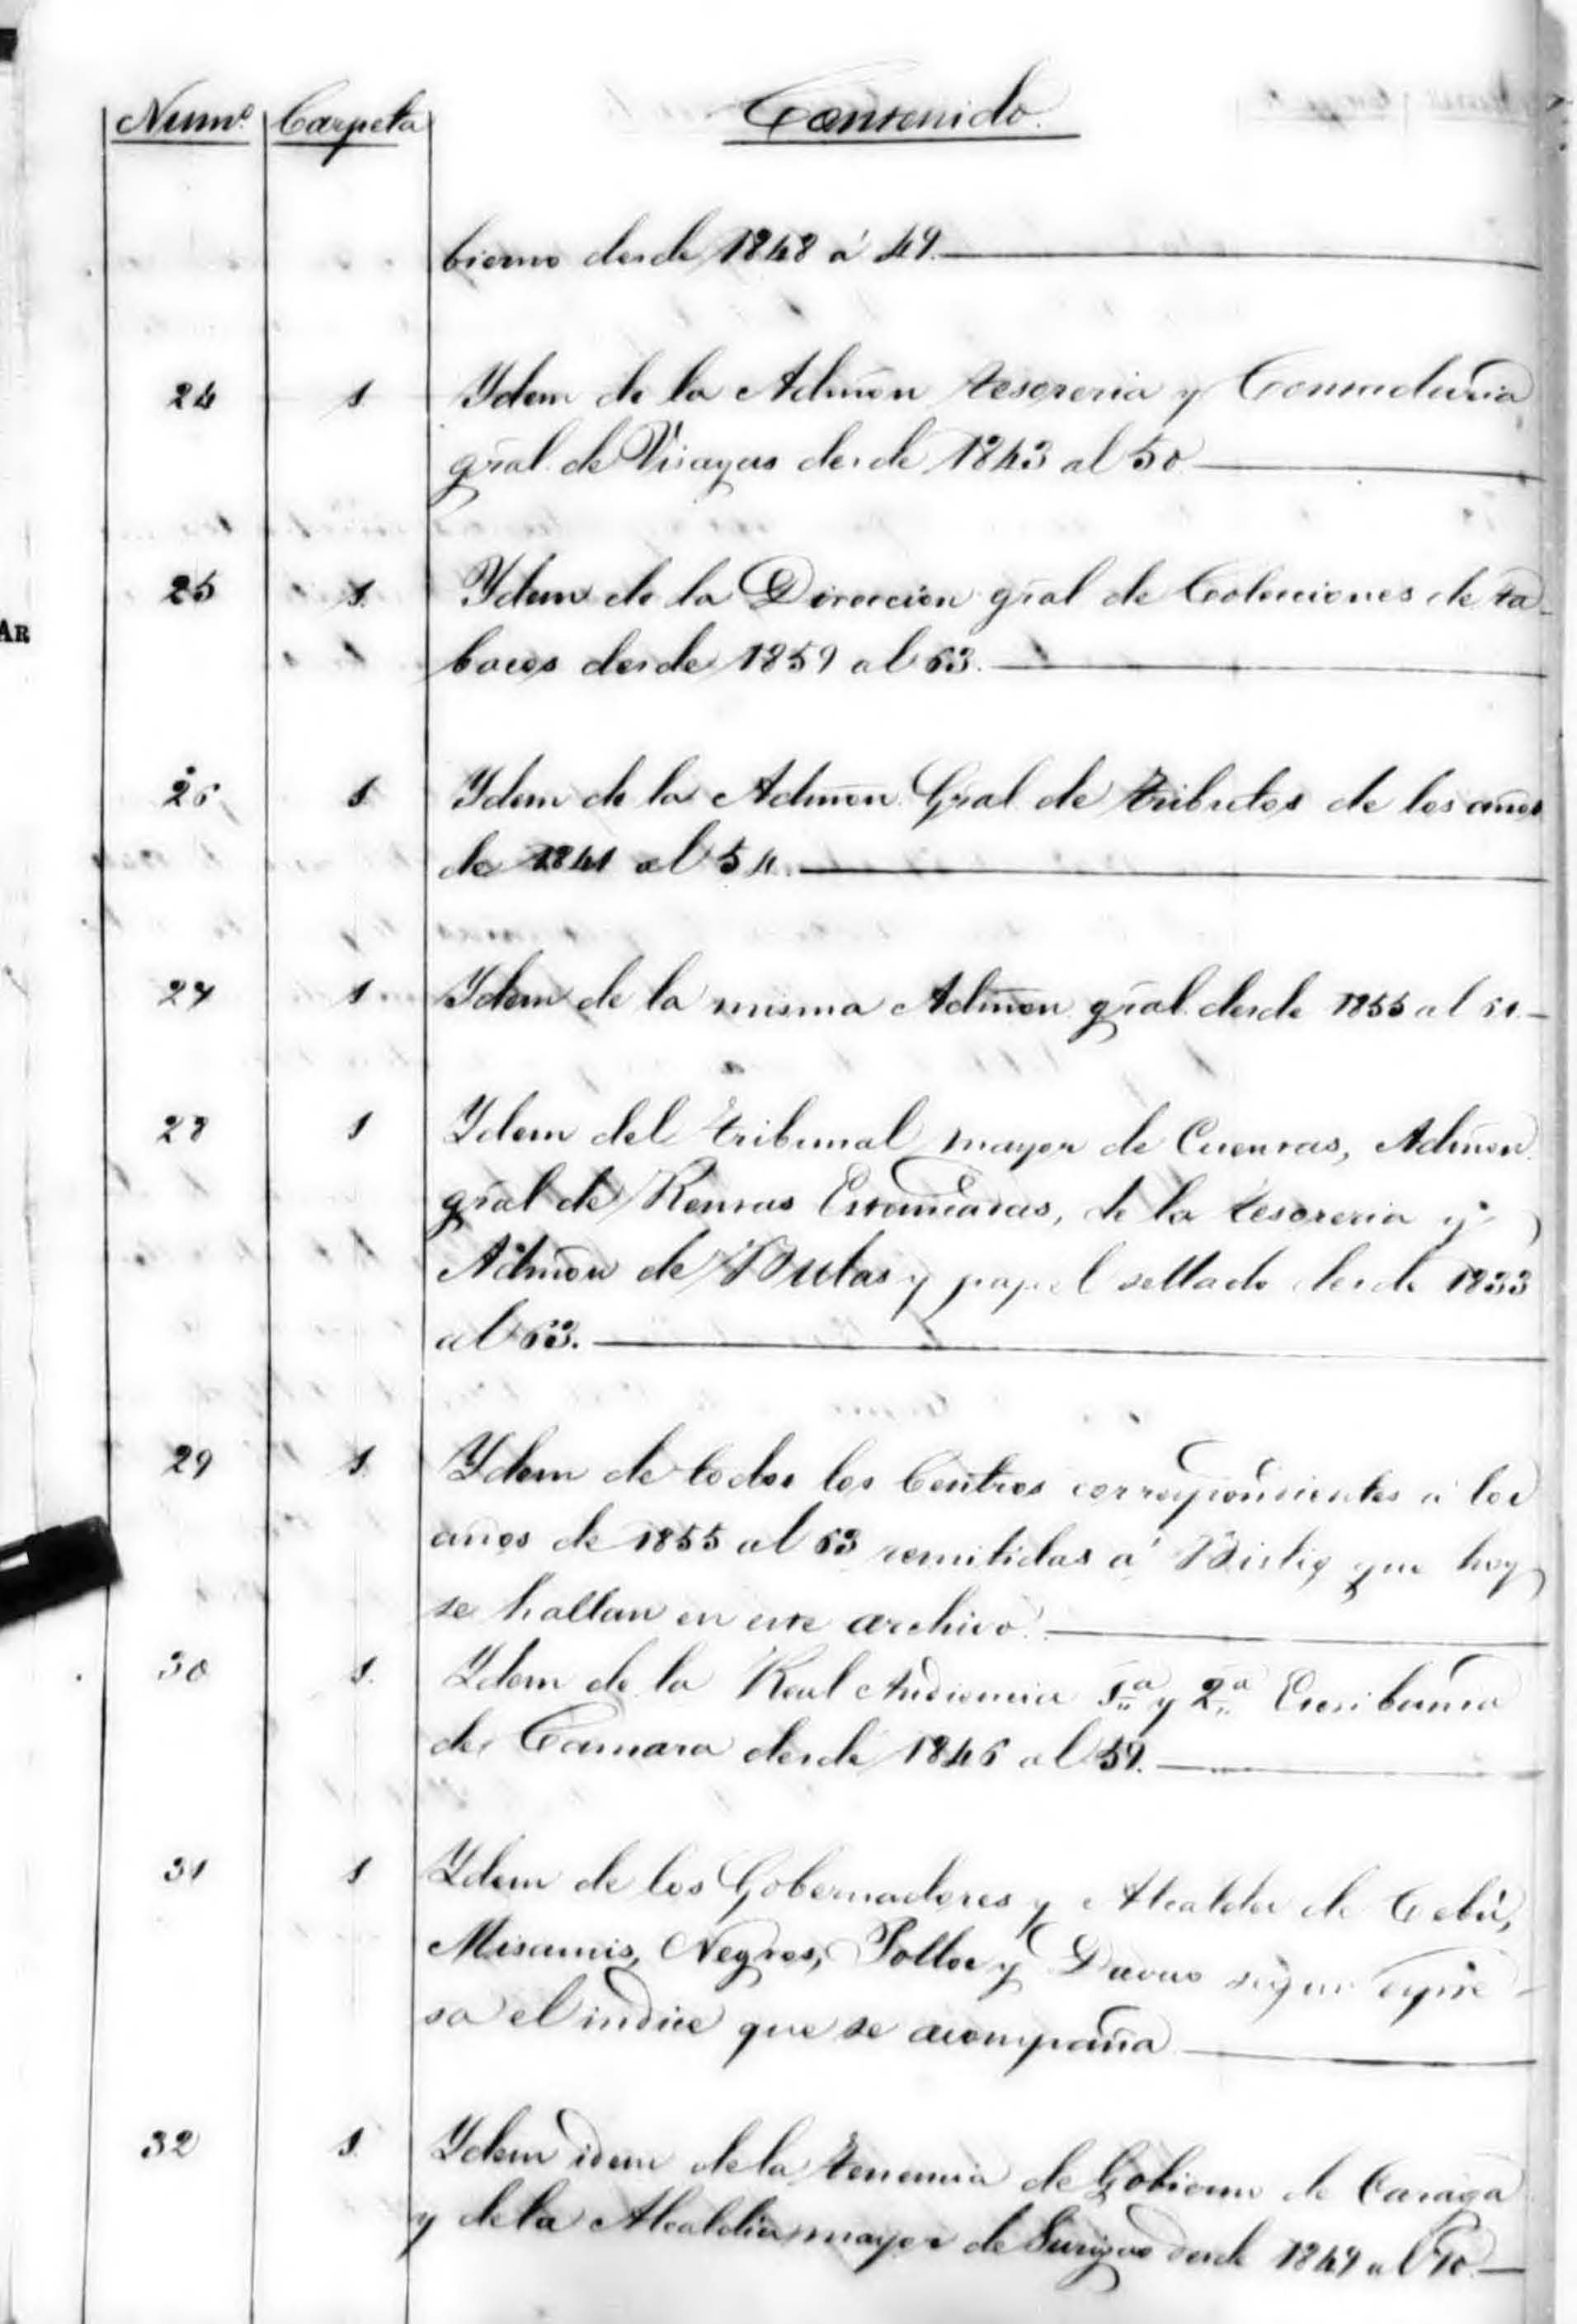 Num.º Carpeta Contenido.
bierno desde 1848 á 49.
24 1 Ydem de la Admon tesoreria y Contaduria
gral. de Visayas desde 1843 al 50.
25 1. Ydem de la Direccion gral de Colecciones de ta-
AR
bacos desde 1859 al 63.
26 1 Ydem de la Admon. Gral de tributos de los años
de 1841 al 54.
27 1 Ydem de la misma Admon gral. desde 1855 al 61.
28 1 Ydem del tribunal mayor de Cuentas, Admon.
gral de Rentas Estancadas, de la tesoreria y
Admon de Bulas y papel sellado desde 1833
al 63.
29 1. Ydem de todos los Centros correspondientes á los
años de 1855 al 63 remitidas á Bislig que hoy
se hallan en este archivo.
30 1. Ydem de la Real Audiencia 1ª y 2ª Escribania
de Camara desde 1846 al 59.
31 1 Ydem de los Gobernadores y Alcaldes de Cebú,
Misamis, Negros, Polloc y Davao segun expre-
sa el indice que se acompaña
32 1. Ydem idem de la tenencia de Gobierno de Caraga
y de la Alcaldia mayor de Surigao desde 1849 al